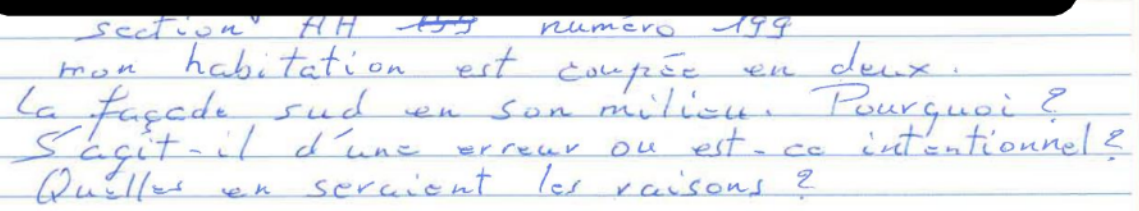 section AH 199 numéro 199
mon habitation est coupée en deux.
La façade sud en son milieu. Pourquoi ?
S'agit-il d'une erreur ou est-ce intentionnel ?
Quelles en seraient les raisons ?